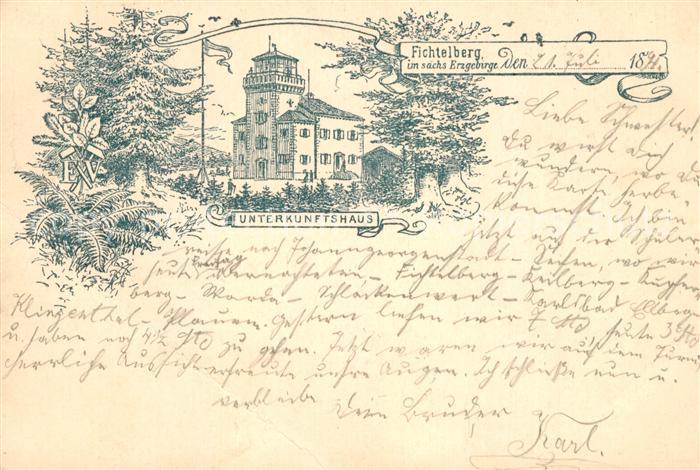 Fichtelberg
im sächs Erzgebirge. Den 21. Juli 18
EV
UNTERKUNFTSHAUS
Liebe Schwester!
Du wirst dich
wundern, wo da
diese Karte herbe
kommt. Ich bin
jetzt auf der Schüler
reise nach Johanngeorgenstadt - wo wir
heut übernachteten, - Fichtelberg - Keilberg - Kupfer
berg - - Schlackenwert - Karlsbad
Klingenthal - Plauen. Gestern liefen wir 7 Std heute 3 Std
u. haben noch 4½ Std zu gehen. Jetzt waren wir auf dem Turm
herrliche Aussicht erfreute unsre Augen. Ich schließe nun u.
verbleibe Dein Bruder
Karl.